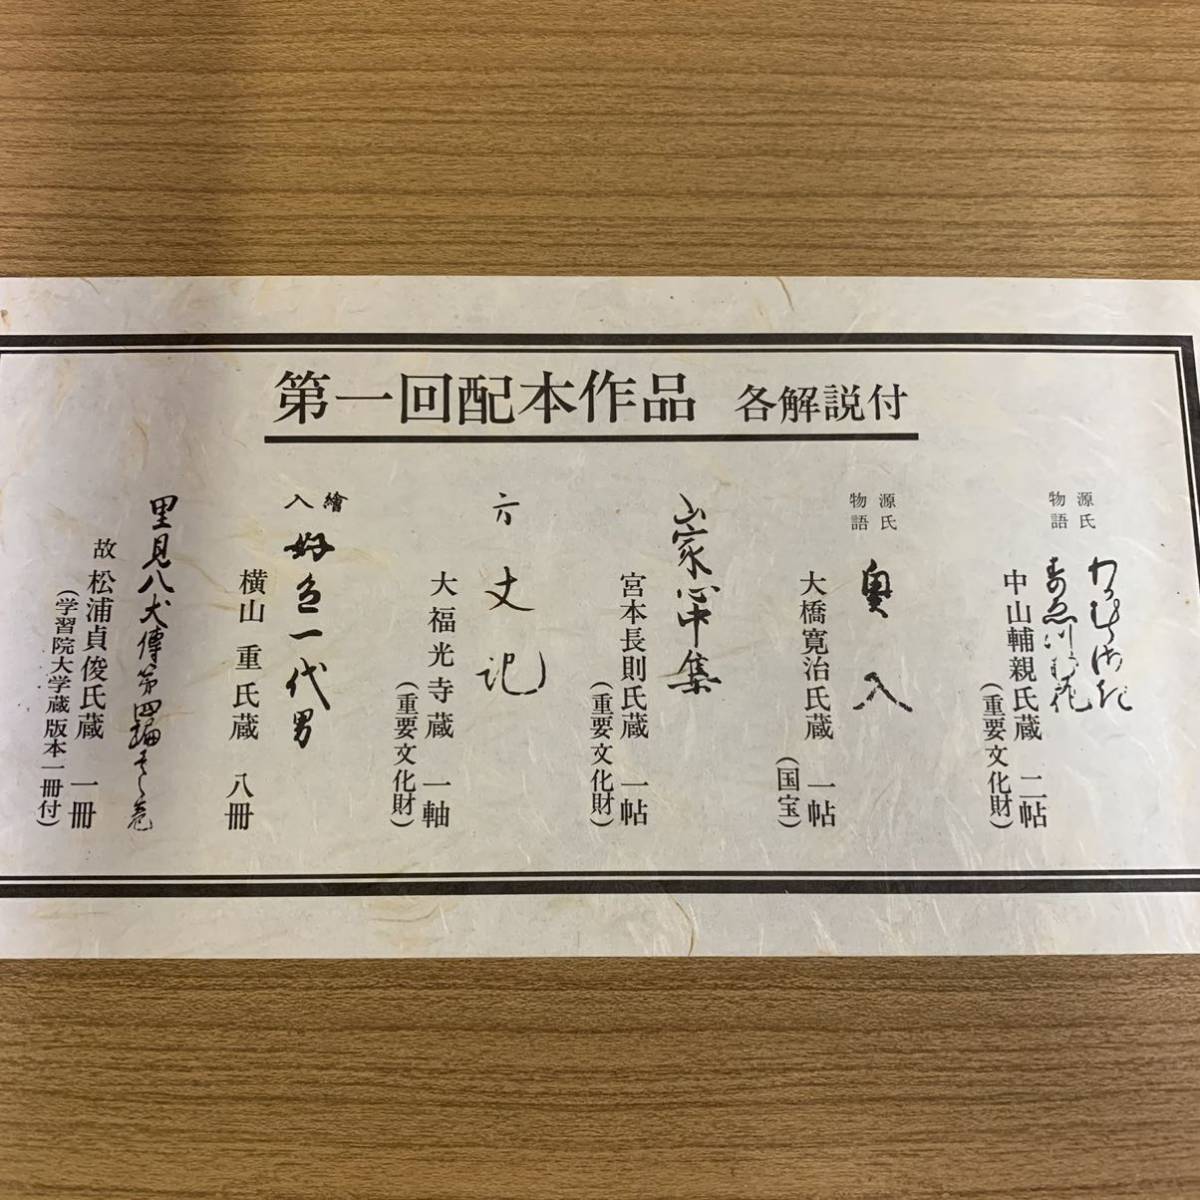 第一回配本作品 各解説付
源氏物語 わかむらさき
すゑつむ花
中山輔親氏蔵 二帖
(重要文化財)
源氏物語 奥入
大橋寛治氏蔵 一帖
(国宝)
山家心中集
宮本長則氏蔵 一帖
(重要文化財)
方丈記
大福光寺蔵 一軸
(重要文化財)
繪入 好色一代男
横山重氏蔵 八冊
里見八犬傳第四輯之巻
故 松浦貞俊氏蔵 一冊
(学習院大学蔵版本一冊付)